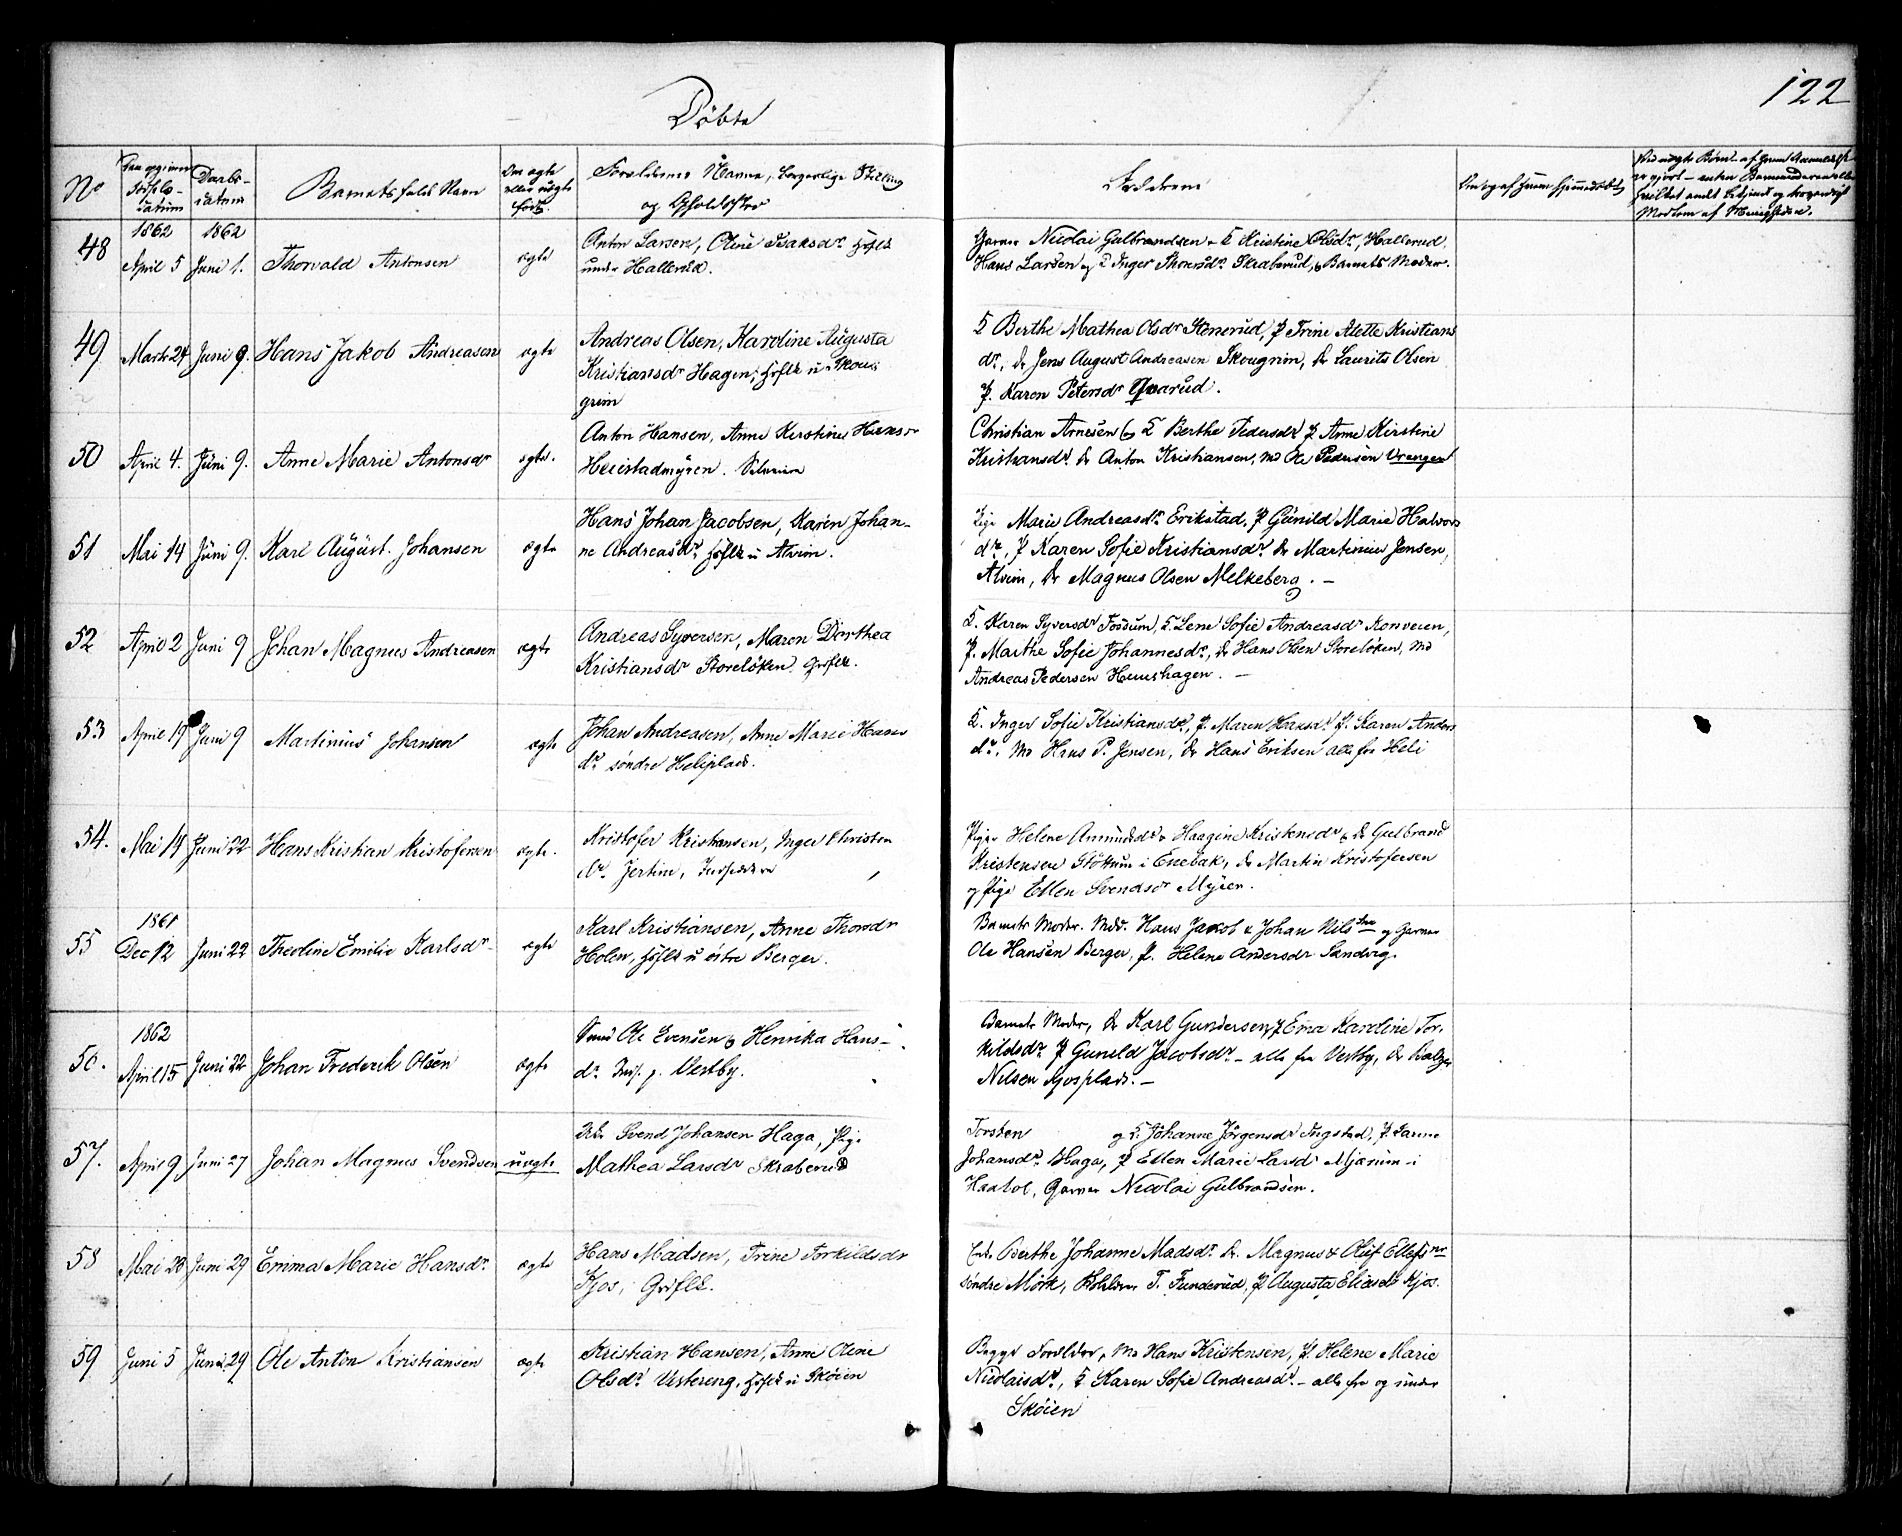 122
Döbte
No
Fødsels-
datum
Daabs-
datum
Barnets fulde Navn
Om ægte
eller uægte
født.
Forældrenes Navne, borgerlige Stilling
og Opholdssted
Fadderne
1862 1862
48 April 5 Juni 1. Thorvald Antonsen ægte
Anton Larsen, Oline Isaksdr. Hsflk
under Hallerud.
Nicolai Gulbrandsen & K Kristine Olsdr, Hallerud.
Hans Larsen og Inger Skraberud, & Barnets Moder.
49 Marts 24 Juni 9. Hans Jakob Andreasen ægte
Andreas Olsen, Karoline Augusta
Kristiansdr Hagen, Hsflk u Skou
grim
K Berthe Mathea Olsdr Stenerud, P Trine Alette Kristians
dr, Dr Jens August Andreasen Skougrim, Dr Laurits Olsen
P. Karen Petersdr
50 April 4. Juni 9. Anne Marie Antonsdr ægte.
Anton Hansen, Anne Kirstine Hansdr
Christian Arnesen & K Berthe Pedersdr P Anne Kirstine
Kristiansdr. Dr Anton Kristiansen, Md Ole Pedersen Vrangen
51 Mai 14 Juni 9. Karl August Johansen ægte
Hans Johan Jacobsen, Karen Johan-
ne Andreasdr, Hsflk u Alvim.
Pige Marie Andreasdr. Erikstad, P Günild Marie Halvors
dr, P Karen Sofie Kristiansdr. Dr Martinius Jensen,
Alvim, Dr Magnus Olsen Melkeberg. –
52 April 2 Juni 9 Johan Magnus Andreasen ægte
Andreas Syversen, Maren Dorthea
Kristiansdr Storeløken
K. Karen Syversdr Fossum, K. Lene Sofie Andreasdr
P. Marthe Sofie Johannesdr, Dr Hans Olsen Storeløken, Md
Andreas Pedersen Huushagen. –
53 April 19 Juni 9 Martinius Johansen ægte
Johan Andreasen, Anne Marie Hans
dr søndre Heliplads.
K. Inger Sofie Kristiansdr, P. Maren Hansdr. P. Karen Anders
dr, Md Hans P. Jensen, Dr Hans Eriksen alle fra Heli
54. Mai 14 Juni 22 Hans Kristian Kristofersen ægte.
Kristofer Kristiansen, Inger Christen
dr.
Piger Helene Amundsdr & Haagine Kristensdr & Dr Gulbrand
Kristensen i Enebak, Dr Martin Kristofersen
og Pige Ellen Svendsdr Myren.
1861
55 Dec 12 Juni 22 Theoline Emilie Karlsdr ægte
Karl Kristiansen, Anne Thorsdr
Holen, Hsflk u østre Berger.
Barnets Moder. Hans Jakob & Johan Nils og Garver
Ole Hansen Berger, P. Helene Andersdr Sandvig.
1862
56. April 15 Juni 22 Johan Frederik Olsen ægte
Smed Ole Evensen & Henrika Hans-
dr. Vestby.
Barnets Moder, Dr Karl Gundersen, P Ema Karoline Tor-
kildsdr. P Gunild Jacobsdr. – alle fra Vestby, Dr
Nilsen Kjosplads. –
57. April 9 Juni 27 Johan Magnus Svendsen uægte
Svend Johansen Haga, Pige
Mathea Larsdr Skraberud
Torsten og K. Johanne Jörgensdr Ingstad, P.
Johansdr. Haga, P Ellen Marie Larsdr Mjærum i
Garver Nicolai Gulbrandsen.
58 Mai 28 Juni 29 Emma Marie Hansdr. ægte
Hans Madsen, Trine Torkildsdr
Kjos,
Berthe Johanne Madsdr. Dr. Magnus & Oluf
søndre Mörk, T. Funderud, P Augusta Eliasdr Kjos.
59 Juni 5 Juni 29 Ole Anton Kristiansen ægte
Kristian Hansen, Anne Oline
Olsdr. Vestereng, Hsflk u Skøien
Begge Forældre, Md Hans Kristensen, P. Helene Marie
Nicolaisdr, K Karen Sofie Andreasdr. – alle fra og under
Skøien